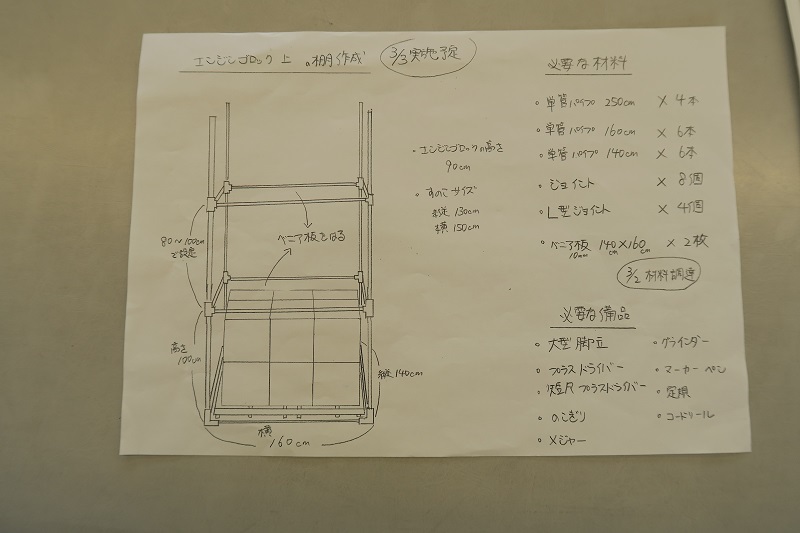 エンジンブロック上の棚作成
3/3実施予定
80〜100cm
で設定
ベニア板をはる
高さ
100cm
縦140cm
横
160cm
・エンジンブロックの高さ
90cm
・すのこサイズ
縦 130cm
横 150cm
必要な材料
・単管パイプ 250cm × 4本
・単管パイプ 160cm × 6本
・単管パイプ 140cm × 6本
・ジョイント × 8個
・L型ジョイント × 4個
・ベニア板 140cm×160cm × 2枚
10mm
3/2 材料調達
必要な備品
・大型脚立
・プラスドライバー
・短尺プラスドライバー
・のこぎり
・メジャー
・グラインダー
・マーカーペン
・定規
・コードリール